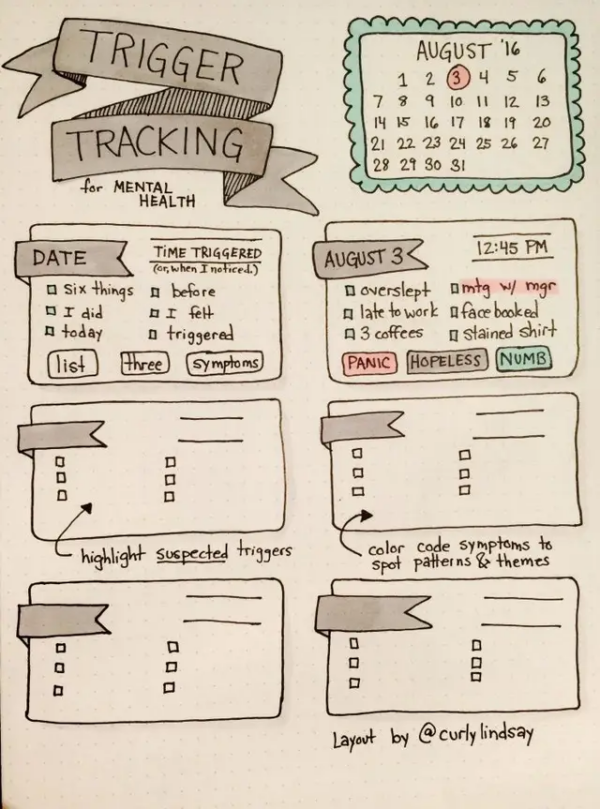 TRIGGER
TRACKING
for MENTAL
HEALTH
AUGUST '16
1 2 3 4 5 6
7 8 9 10 11 12 13
14 15 16 17 18 19 20
21 22 23 24 25 26 27
28 29 30 31
DATE
TIME TRIGGERED
(or, when I noticed.)
six things
before
I did
I felt
today
triggered
list three symptoms
AUGUST 3
12:45 PM
overslept
mtg w/ mgr
late to work
facebooked
3 coffees
stained shirt
PANIC HOPELESS NUMB
highlight suspected triggers
color code symptoms to
spot patterns & themes
Layout by @curlylindsay